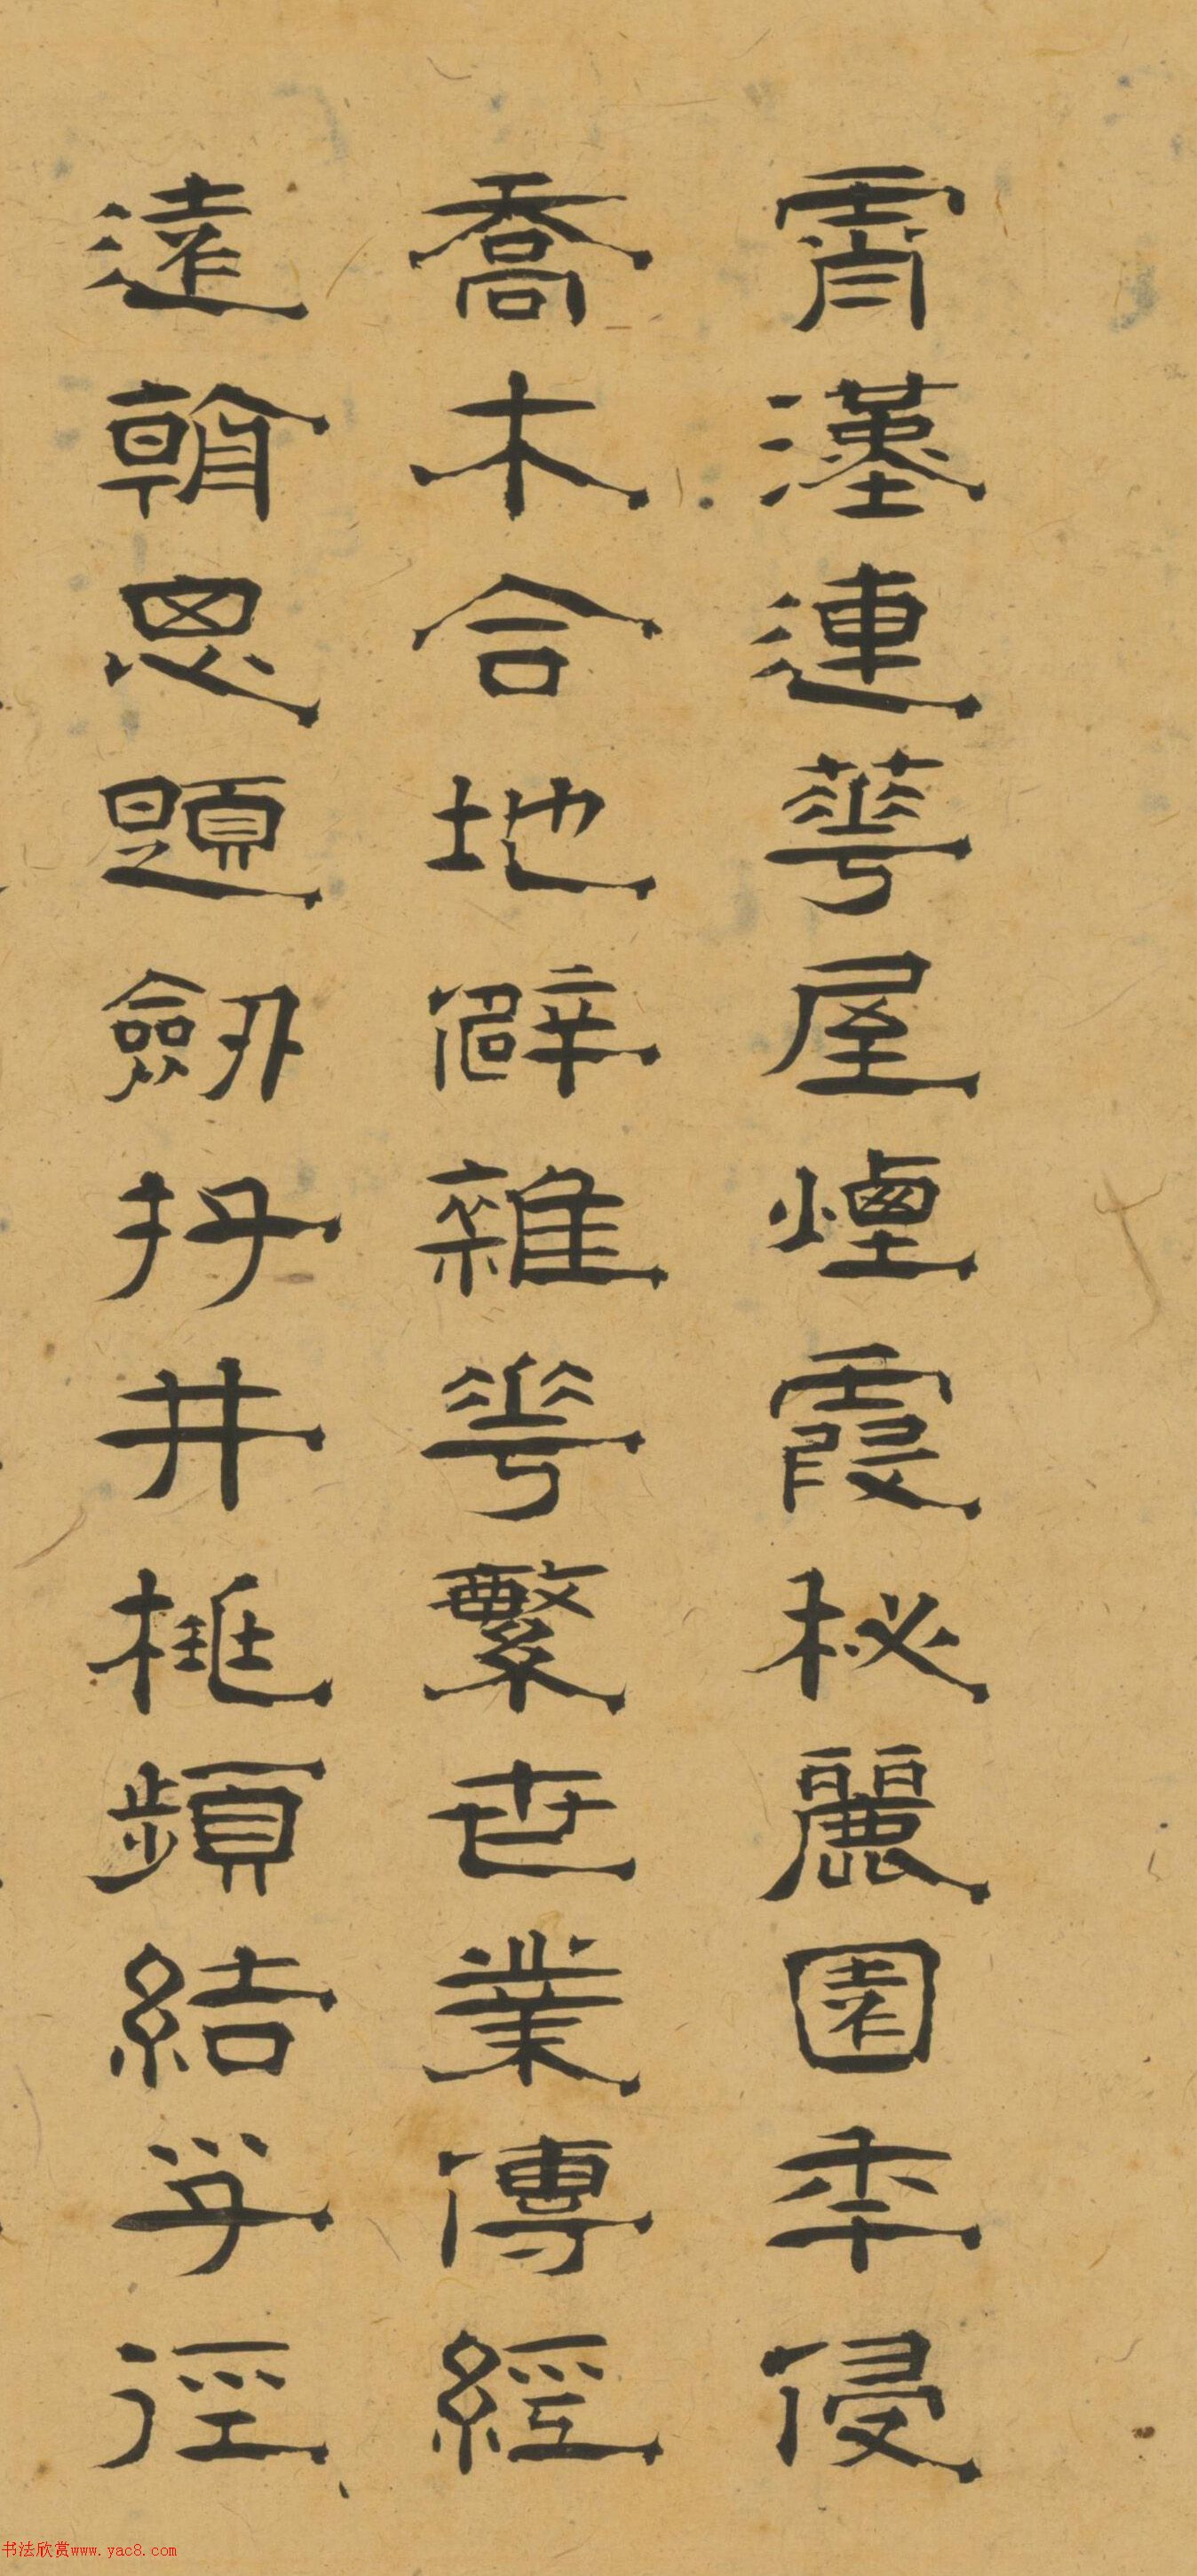 霄漢連華屋煙霞秘麗園年侵
喬木合地僻雜花繁世業傳經
遠翰思題劍丹井桃頻結芳徑
书法欣赏www.yac8.com